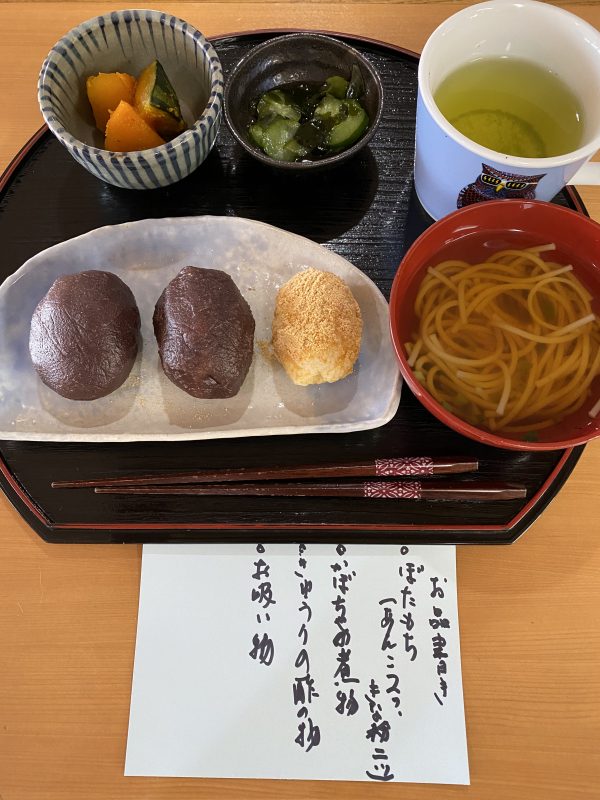 お品書き
○ぼたもち
(あんこ2つ、
きな粉二ツ)
○かぼちゃの煮物
○きゅうりの酢の物
○お吸い物